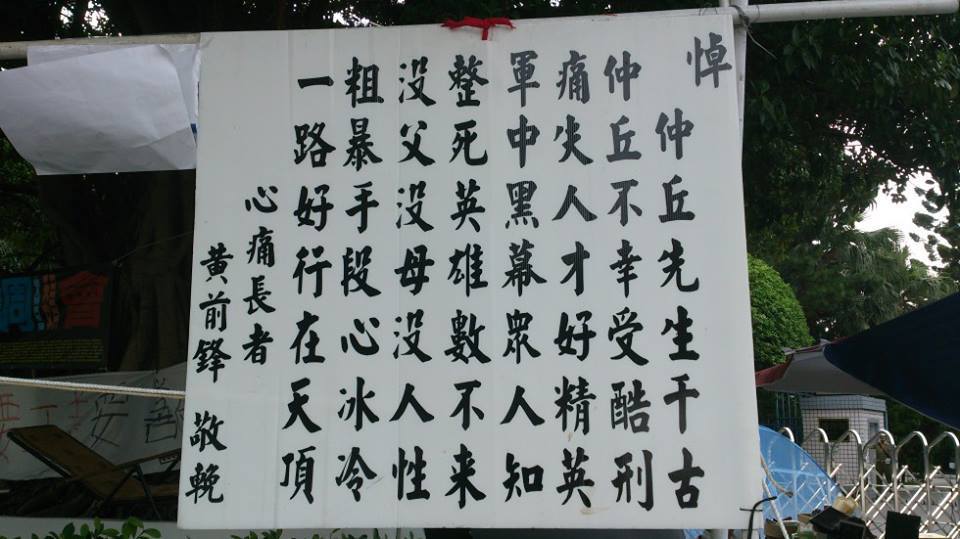 悼
仲丘先生千古
仲丘不幸受酷刑
痛失人才好精英
軍中黑幕眾人知
整死英雄數不来
没父没母没人性
粗暴手段心冰冷
一路好行在天頂
心痛長者
黃前鋒 敬輓